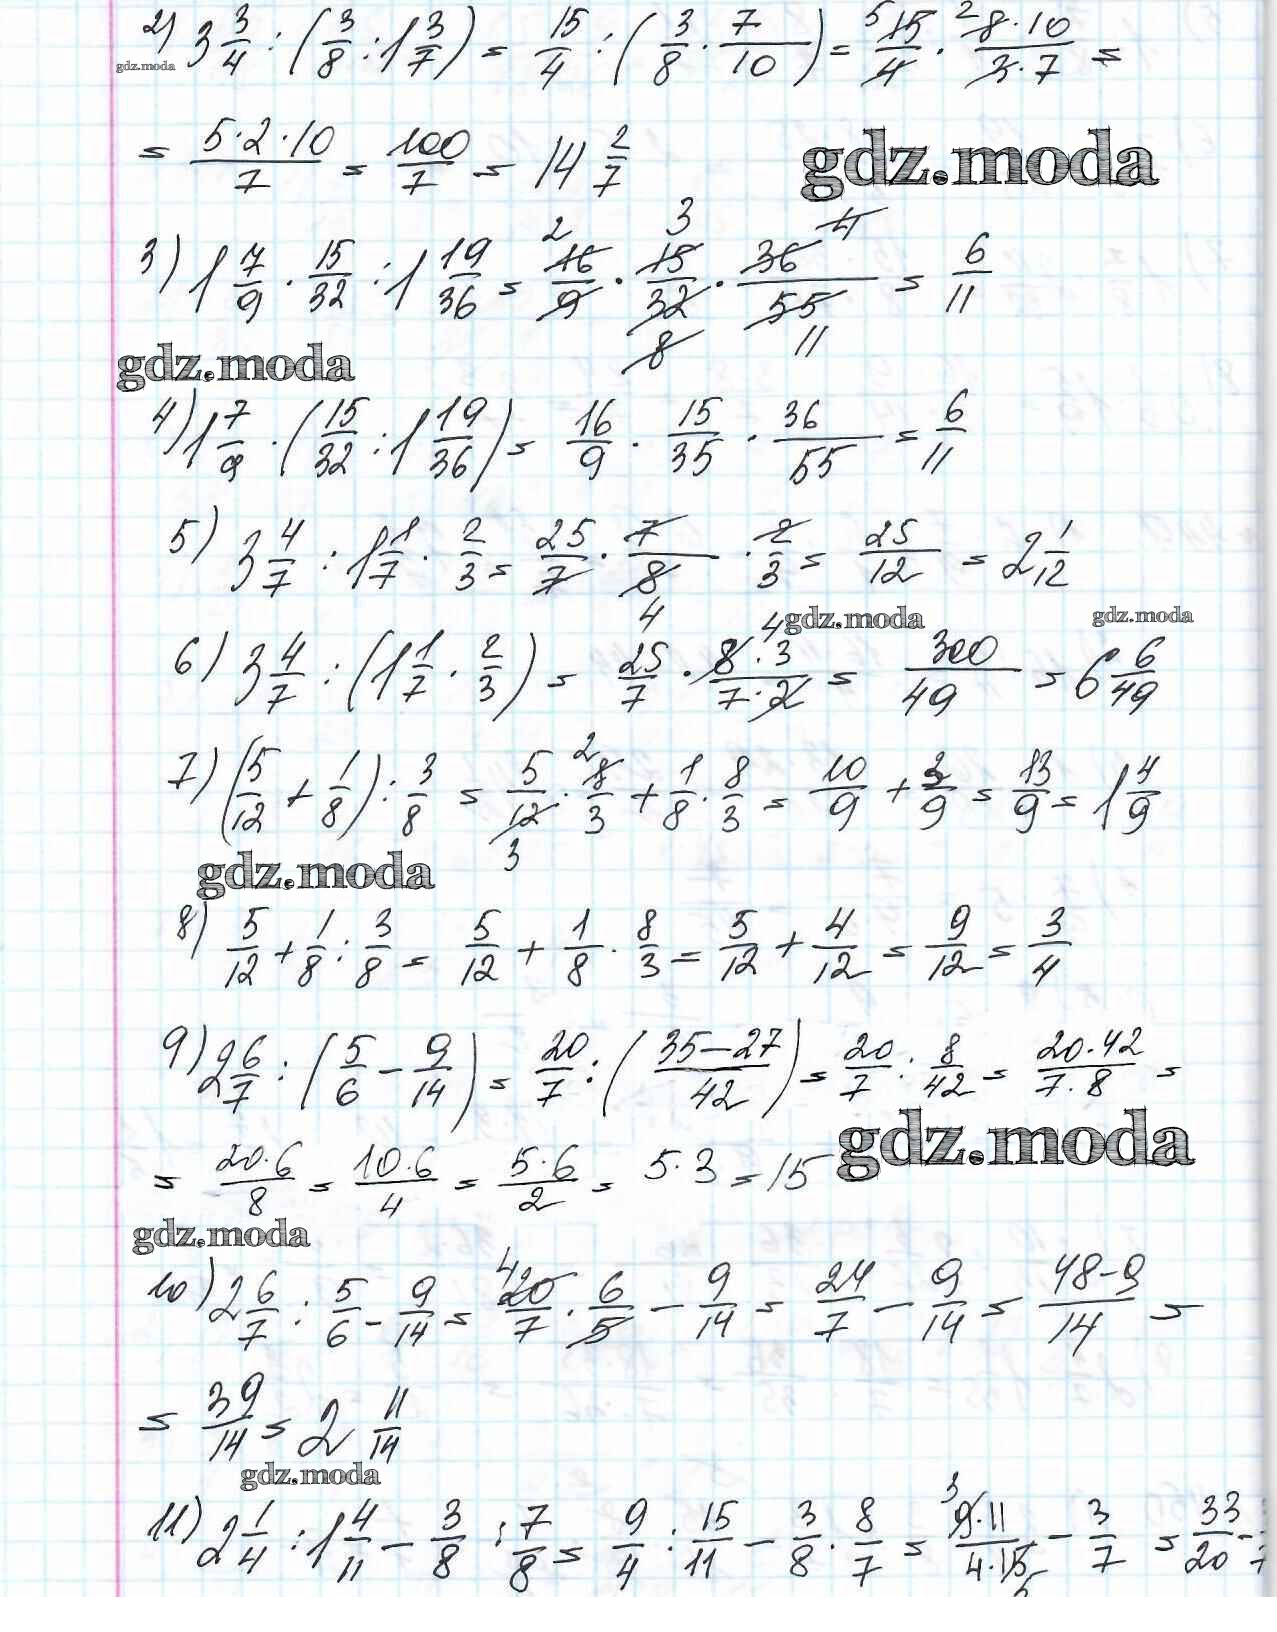 2) 3 3/4 : (3/8 : 1 3/7) = 15/4 : (3/8 · 7/10) = 5 15/4 · 2 8·10/3·7 =
gdz.moda
= 5·2·10/7 = 100/7 = 14 2/7
gdz.moda
3) 1 7/9 · 15/32 : 1 19/36 = 2 16/9 · 3 15/32 8 · 36 4/55 11 = 6/11
gdz.moda
4) 1 7/9 · (15/32 : 1 19/36) = 16/9 · 15/35 · 36/55 = 6/11
5) 3 4/7 : 1 1/7 · 2/3 = 25/7 · 7/8 4 · 2/3 = 25/12 = 2 1/12
gdz.moda gdz.moda
6) 3 4/7 : (1 1/7 · 2/3) = 25/7 · 4 8·3/7·2 = 300/49 = 6 6/49
7) (5/12 + 1/8) : 3/8 = 5/12 3 · 2 8/3 + 1/8 · 8/3 = 10/9 + 3/9 = 13/9 = 1 4/9
gdz.moda
8) 5/12 + 1/8 : 3/8 = 5/12 + 1/8 · 8/3 = 5/12 + 4/12 = 9/12 = 3/4
9) 2 6/7 : (5/6 − 9/14) = 20/7 : (35−27/42) = 20/7 : 8/42 = 20·42/7·8 =
gdz.moda
= 20·6/8 = 10·6/4 = 5·6/2 = 5·3 = 15
gdz.moda
10) 2 6/7 : 5/6 − 9/14 = 4 20/7 · 6/5 − 9/14 = 24/7 − 9/14 = 48−9/14 =
= 39/14 = 2 11/14
gdz.moda
11) 2 1/4 : 1 4/11 − 3/8 : 7/8 = 9/4 : 15/11 − 3/8 · 8/7 = 3 9·11/4·15 5 − 3/7 = 33/20 −